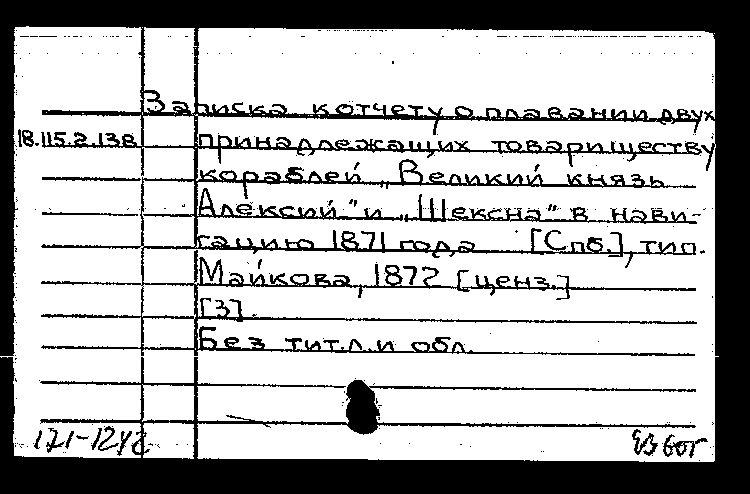 Записка к отчету о плавании двух
18.115.2.138 принадлежащих товариществу
кораблей „Великий князь
Алексий" и „Шексна" в нави-
гацию 1871 года [Спб.], тип.
Майкова, 1872 [ценз.]
[3].
Без тит.л. и обл.
171-1242